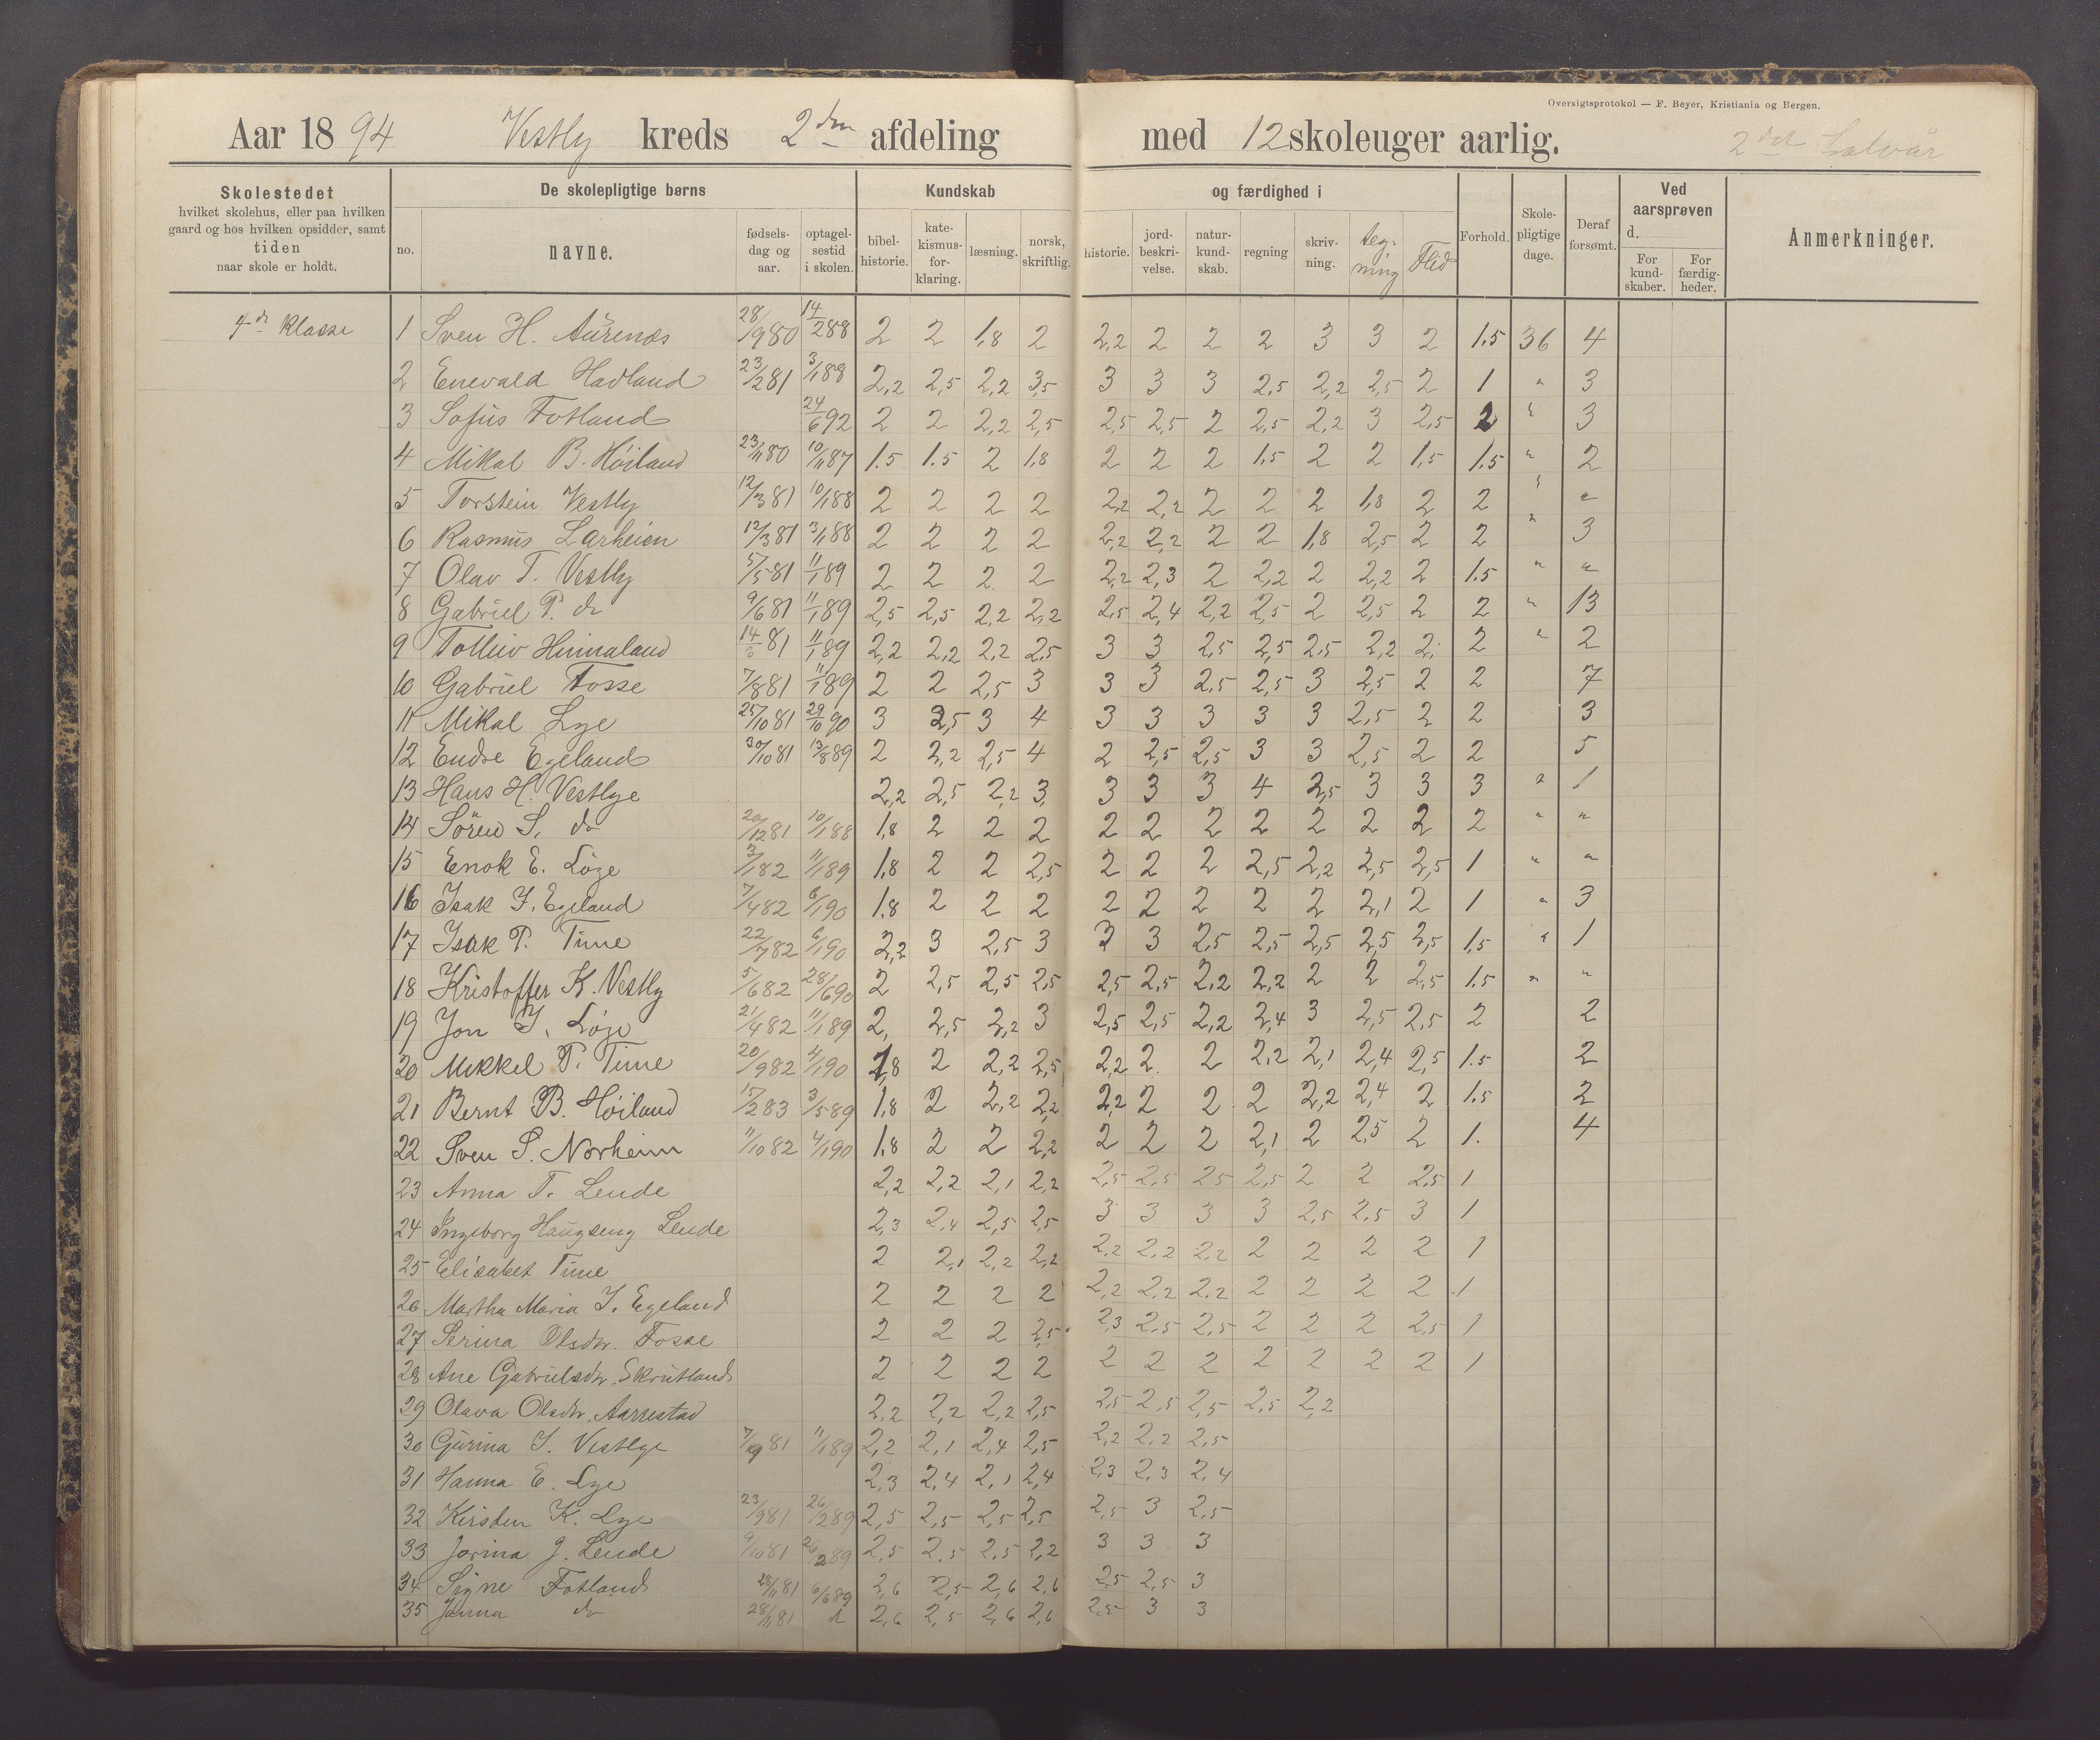 Oversigtsprotokol — F. Beyer, Kristiania og Bergen.
Aar 1894 Vestly kreds 2den afdeling med 12 skoleuger aarlig. 2det Halvår
Skolestedet hvilket skolehus, eller paa hvilken gaard og hos hvilken opsidder, samt tiden naar skole er holdt.
De skolepligtige børns
no. navne. fødsels-dag og aar. optagel-sestid i skolen.
Kundskab og færdighed i
bibel-historie. kate-kismus-for-klaring. læsning. norsk, skriftlig. historie. jord-beskri-velse. natur-kund-skab. regning skriv-ning. teg-ning Flid
Forhold. Skole-pligtige dage. Deraf forsømt.
Ved aarsprøven d. For kund-skaber. For færdig-heder.
Anmerkninger.
4de Klasse 1 Sven H. Aurenes 28/9 80 14/2 88 2 2 1,8 2 2,2 2 2 2 3 3 2 1.5 36 4
2 Enevald Hadland 23/2 81 3/1 88 2,2 2,5 2,2 3,5 3 3 3 2,5 2,2 2,5 2 1 " 3
3 Sofus Fotland 24/6 92 2 2 2,2 2,5 2,5 2,5 2 2,5 2,2 3 2,5 2 " 3
4 Mikal B. Høiland 23/11 80 10/11 87 1.5 1.5 2 1,8 2 2 2 1,5 2 2 1,5 1.5 " 2
5 Torstein Vestly 12/3 81 10/1 88 2 2 2 2 2,2 2,2 2 2 2 1,8 2 2 " "
6 Rasmus Larheien 12/3 81 3/1 88 2 2 2 2 2,2 2,2 2 2 1,8 2,5 2 2 " 3
7 Olav T. Vestly 5/5 81 11/1 89 2 2 2 2 2,2 2,3 2 2,2 2 2,2 2 1.5 " "
8 Gabriel P. do 9/6 81 11/1 89 2,5 2,5 2,2 2,2 2,5 2,4 2,2 2,5 2 2,5 2 2 " 13
9 Tolleiv Hinnaland 14/6 81 11/1 89 2,2 2,2 2,2 2,5 3 3 2,5 2,5 2,5 2,2 2 2 " 2
10 Gabriel Fosse 7/8 81 11/1 89 2 2 2,5 3 3 3 2,5 2,5 3 2,5 2 2 7
11 Mikal Lye 25/10 81 29/10 90 3 2,5 3 4 3 3 3 3 3 2,5 2 2 3
12 Endre Egeland 30/10 81 13/8 89 2 2,2 2,5 4 2 2,5 2,5 3 3 2,5 2 2 5
13 Hans H. Vestlye 2,2 2,5 2,2 3 3 3 3 4 2,5 3 3 3 " 1
14 Sören S. do 20/12 81 10/1 88 1,8 2 2 2 2 2 2 2 2 2 2 2 " "
15 Enok E. Löge 3/1 82 11/1 89 1,8 2 2 2,5 2 2 2 2,5 2,2 2,5 2,5 1 " "
16 Isak J. Egeland 7/4 82 6/1 90 1.8 2 2 2 2 2 2 2 2 2,1 2 1 " 3
17 Isak P. Time 22/7 82 6/1 90 2,2 3 2,5 3 3 3 2,5 2,5 2,5 2,5 2,5 1,5 " 1
18 Kristoffer K. Vestly 5/6 82 28/6 90 2 2,5 2,5 2,5 2,5 2,5 2,2 2,2 2 2 2,5 1.5 " "
19 Jon J. Löge 21/4 82 11/1 89 2, 2,5 2,2 3 2,5 2,5 2,2 2,4 3 2,5 2,5 2 2
20 Mikkel P. Time 20/9 82 4/1 90 1,8 2 2,2 2,5 2,2 2 2 2,2 2,1 2,4 2,5 1.5 2
21 Bernt B. Høiland 15/2 83 3/5 89 1,8 2 2,2 2,2 2,2 2 2 2 2,2 2,4 2 1.5 2
22 Sven S. Norheim 11/10 82 4/1 90 1,8 2 2 2,2 2 2 2 2,1 2 2,5 2 1. 4
23 Anna T. Lende 2,2 2,2 2,1 2,2 2,5 2,5 2,5 2,5 2 2 2,5 1
24 Ingeborg Haugseng Lende 2,3 2,4 2,5 2,5 3 3 3 3 2,5 2,5 3 1
25 Elisabet Time 2 2,1 2,2 2,2 2,2 2,2 2,2 2 2 2 2 1
26 Martha Maria J. Egeland 2 2 2 2 2,2 2,2 2,2 2 2 2 2 1
27 Serina Olsdtr. Fosse 2 2 2 2,5 2,3 2,5 2,5 2 2 2 2,5 1
28 Ane Gabrielsdtr. Skrutland 2 2 2 2 2 2 2 2 2 2 2 1
29 Olava Olsdtr. Aarrestad 2,2 2,2 2,2 2,5 2,5 2,5 2,5 2,5 2,2
30 Gurina J. Vestlye 7/9 81 11/1 89 2,2 2,1 2,4 2,5 2,2 2,2 2,5
31 Hanna E. Lye 2,3 2,4 2,1 2,4 2,3 2,3 2,4
32 Kirsten K. Lye 23/9 81 26/2 89 2,5 2,5 2,5 2,5 2,5 3 2,5
33 Jorina J. Lende 9/10 81 26/2 89 2,5 2,5 2,5 2,2 3 3 3
34 Signe Fotland 28/11 81 6/6 89 2,6 2,5 2,6 2,6 2,5 2,5 3
35 Janna do 28/11 81 do 2,6 2,5 2,6 2,6 2,5 3 3